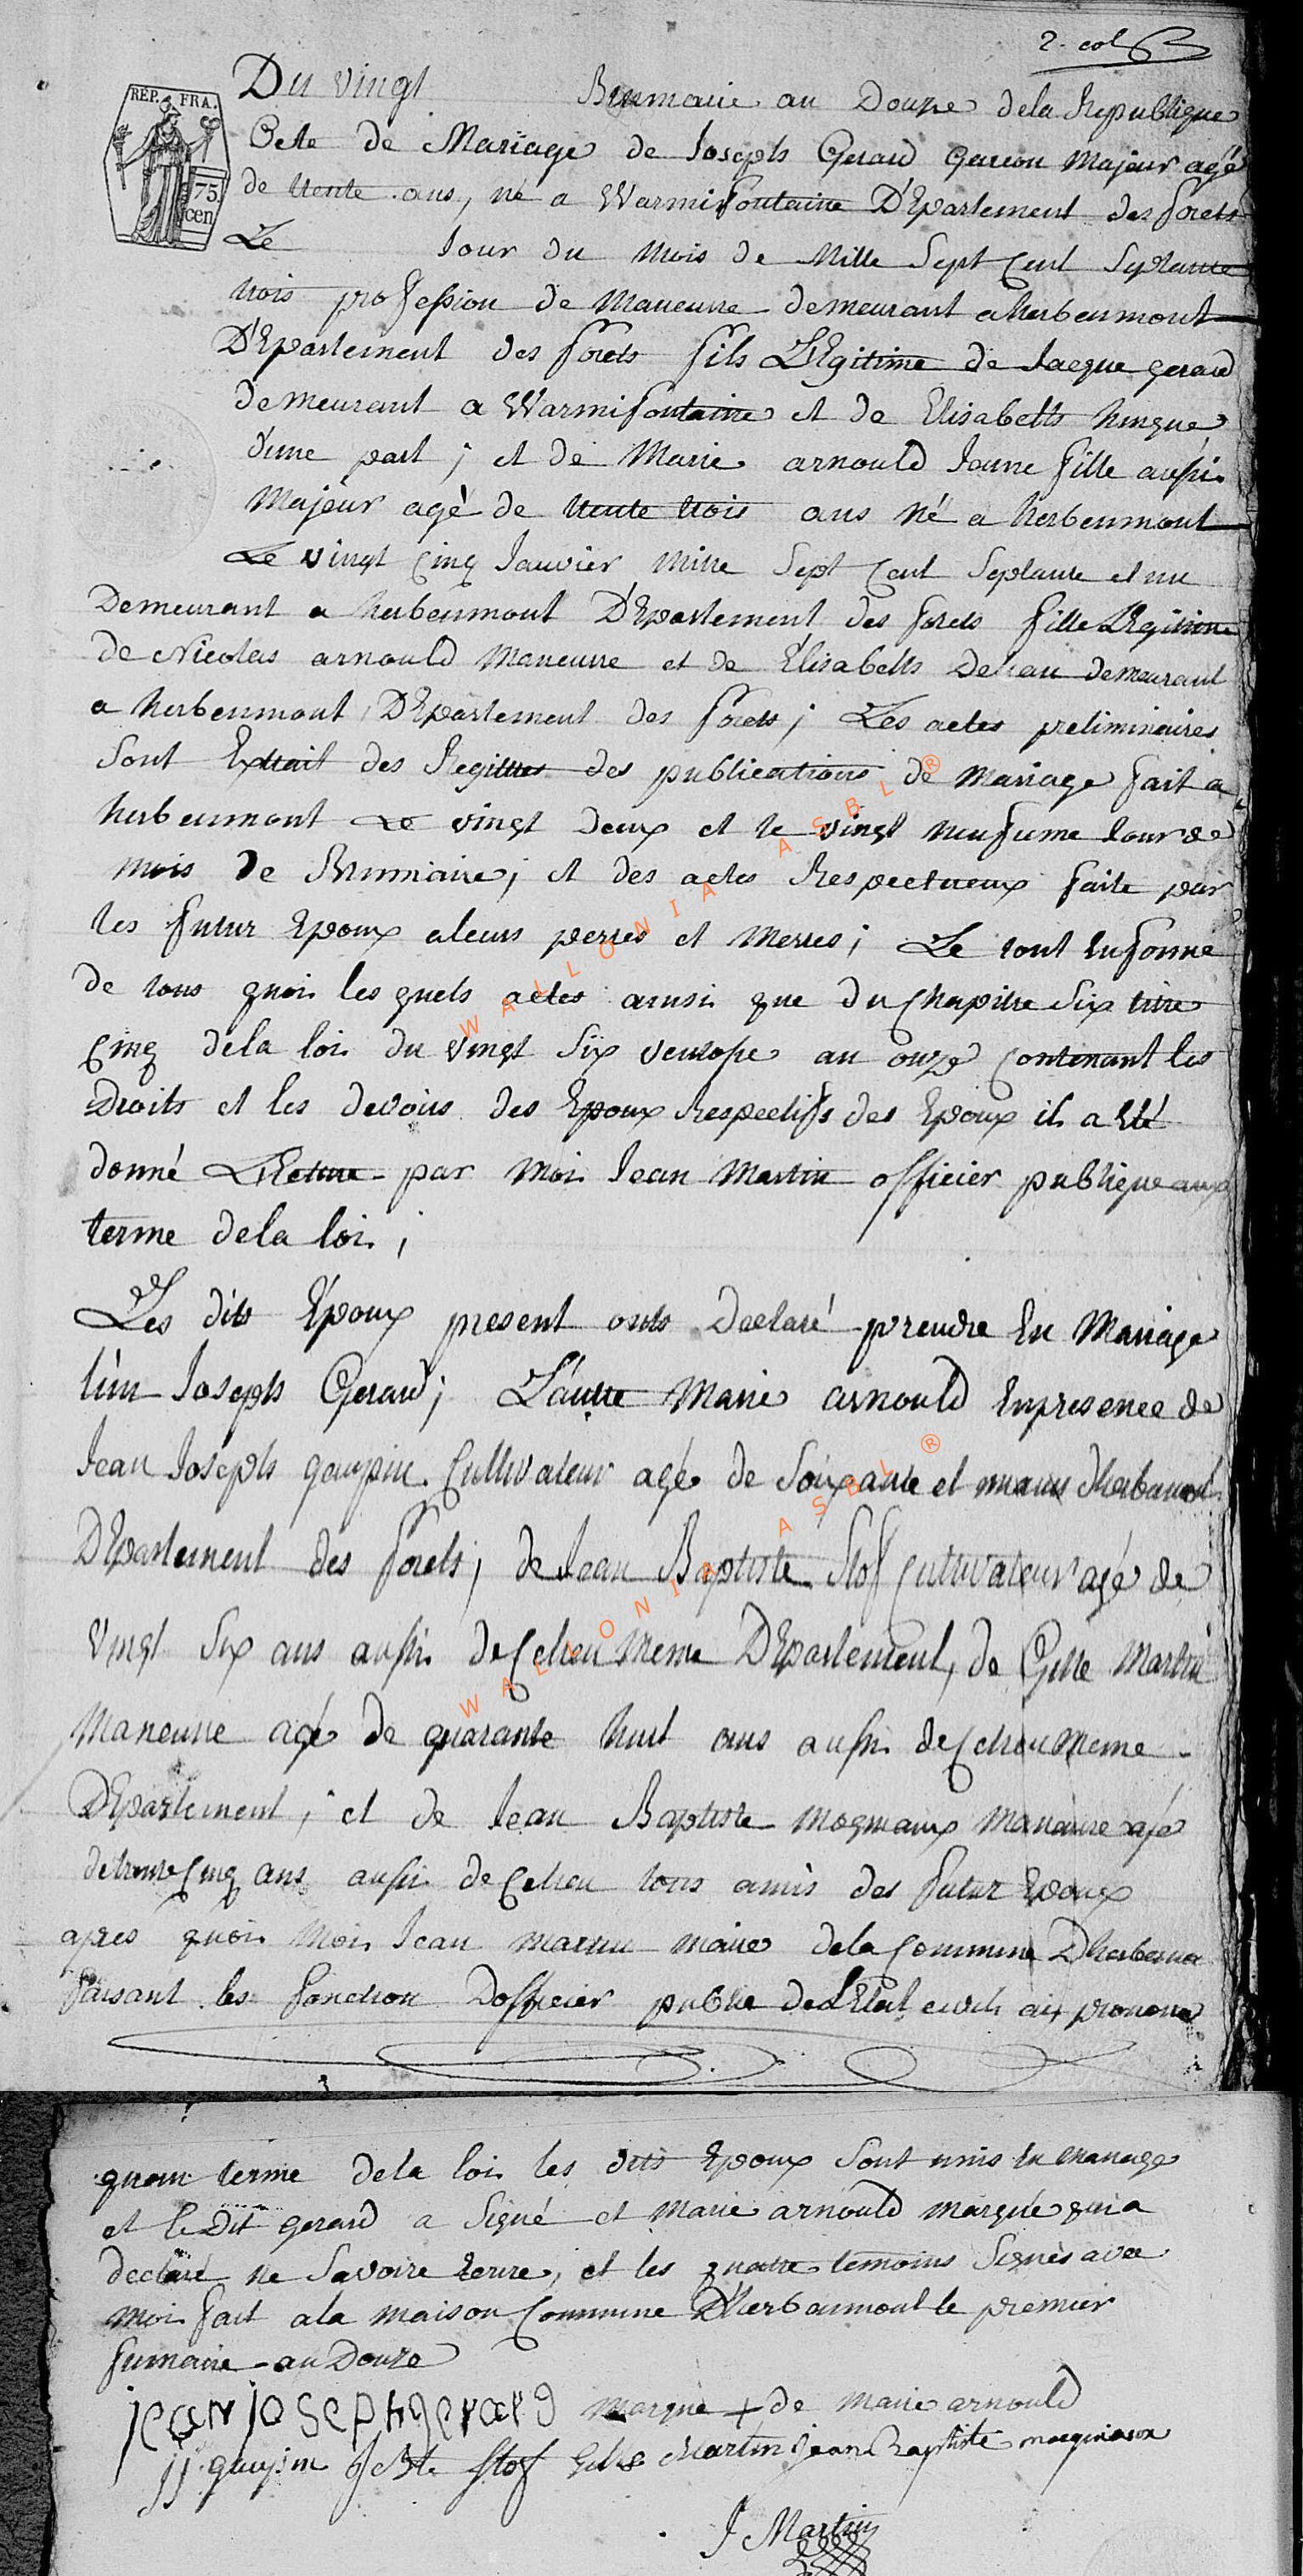 2. col
REP. FRA.
75 cen
Du vingt Brumaire an Douze dela Republique
Acte de Mariage de Joseph Gerard Garcon Majeur agé
de trente ans, né a Warmifontaine D'Epartement des forets
Le Jour du Mois de Mille Sept Cent Septante
trois profession de Maneuvre demeurant a herbeumont
D'Epartement des forets fils LEgitime de Jacque gerard
demeurant a Warmifontaine et de Elisabeth
d'une part ; et de Marie arnould Jeune fille aussi
Majeur agé de trente trois ans Né a herbeumont
Le vingt Cinq Janvier Mille Sept Cent Septante et un
Demeurant a herbeumont D'Epartement des forets fille LEgitime
de Nicolas arnould Maneuvre et de Elisabeth demeurant
a herbeumont D'Epartement des forets ; Les actes preliminaires
Sont Extrait des Registres des publications de Mariage fait a
herbeumont Le vingt deux et le vingt neufieme Jour de
Mois de Brumaire ; et des actes Respectueux faite par
les futur Epoux a leurs perres et Merres ; Le tout En forme
de tous quoi les quels actes ainsi que du Chapitre Six titre
Cinq dela loi du vingt Six ventose an onze Contenant les
Droits et les devoirs des Epoux Respectifs des Epoux il a Eté
donné LEcture par Moi Jean Martin officier publique aux
terme dela loi ;
Les dits Epoux present onts Declaré prendre En Mariage
l'un Joseph Gerard ; L'autre Marie arnould En presence de
Jean Joseph gaupin Cultivateur agé de Soixante et un ans dherbeumont
DEpartement des forets ; de Jean Baptiste Stof Cultivateur agé de
vingt Six ans aussi de Celieu Meme DEpartement, de Gille Martin
Maneuvre agé de quarante huit ans aussi de Celieu Meme
DEpartement ; et de Jean Baptiste Maqinaux Maneuvre agé
de trente Cinq ans aussi de Celieu tous amis des futur Epoux
apres quoi Moi Jean Martin Maire dela Commune Dherbeumo
faisant les fonction Dofficier public de LEtat civil ai prononcé
qu'au terme dela loi les dits Epoux Sont unis En Mariage
et le Dit gerard a Signé et Marie arnould marqué qui a
declaré ne Savoire Ecrire, et les quatre temoins Signés avec
moi fait a la maison Commune D'herbeumont le premier
frimaire an Douze
jean joseph gerard marque + de Marie arnould
jj gaupin J Bte Stof Gilles Martin jean Baptiste maqinaux
J Martin
WALLONIA ASBL ®
WALLONIA ASBL ®